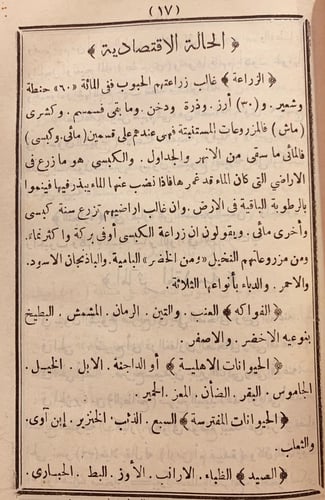 (١٧)
﴿ الحالة الاقتصادية ﴾
﴿ الزراعة ﴾ غالب زراعتهم الحبوب ففي المائة «٦٠» حنطة
وشعير. و(٣٠) أرز. وذرة ودخن. وما بقى فسمسم. وكشرى
(ماش) فالمزروعات المستنبتة فهي عندهم على قسمين (مائى. وكبسى)
فالمائى ما سقى من الانهر والجداول. والكبسى هو ما زرع فى
الاراضي التى كان الماء قد غمرها فاذا نضب عنها الماء يبذر فيها فينموا
بالرطوبة الباقية فى الارض. وان غالب اراضيهم تزرع سنة كبسى
وأخرى مائى. ويقولون ان زراعة الكبسى أوفى بركة واكثر نماء.
ومن مزروعاتهم النخيل «ومن الخضر» البامية. والباذنجان الاسود.
والاحمر. والدباء بأنواعها الثلاثة.
﴿ الفواكه ﴾ العنب. والتين. الرمان. المشمش. البطيخ
بنوعيه الاخضر. والاصفر.
﴿ الحيوانات الاهلية ﴾ أو الداجنة. الابل. الخيل.
الجاموس. البقر. الضأن. المعز. الحمير.
﴿ الحيوانات المفترسة ﴾ السبع. الذئب. الخنزير. إبن آوى.
والثعلب.
﴿ الصيد ﴾ الظباء. الارانب. الأوز. البط. الحبارى.